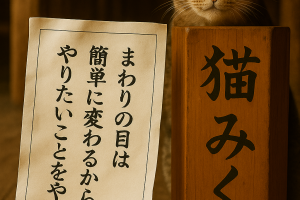 まわりの目は
簡単に変わるから
やりたいことをや
猫みく